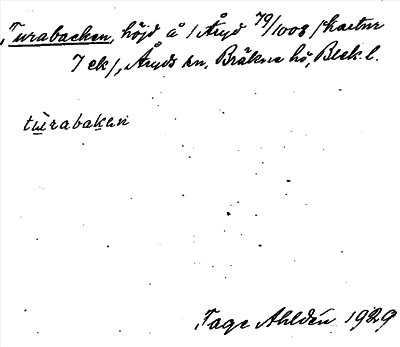 Turabacken, höjd å 1 Åryd 79/1008 (kartan
7 ek), Åryds sn, Bräkne hd, Blek. l.
tùrabakan
Tage Ahldén 1929